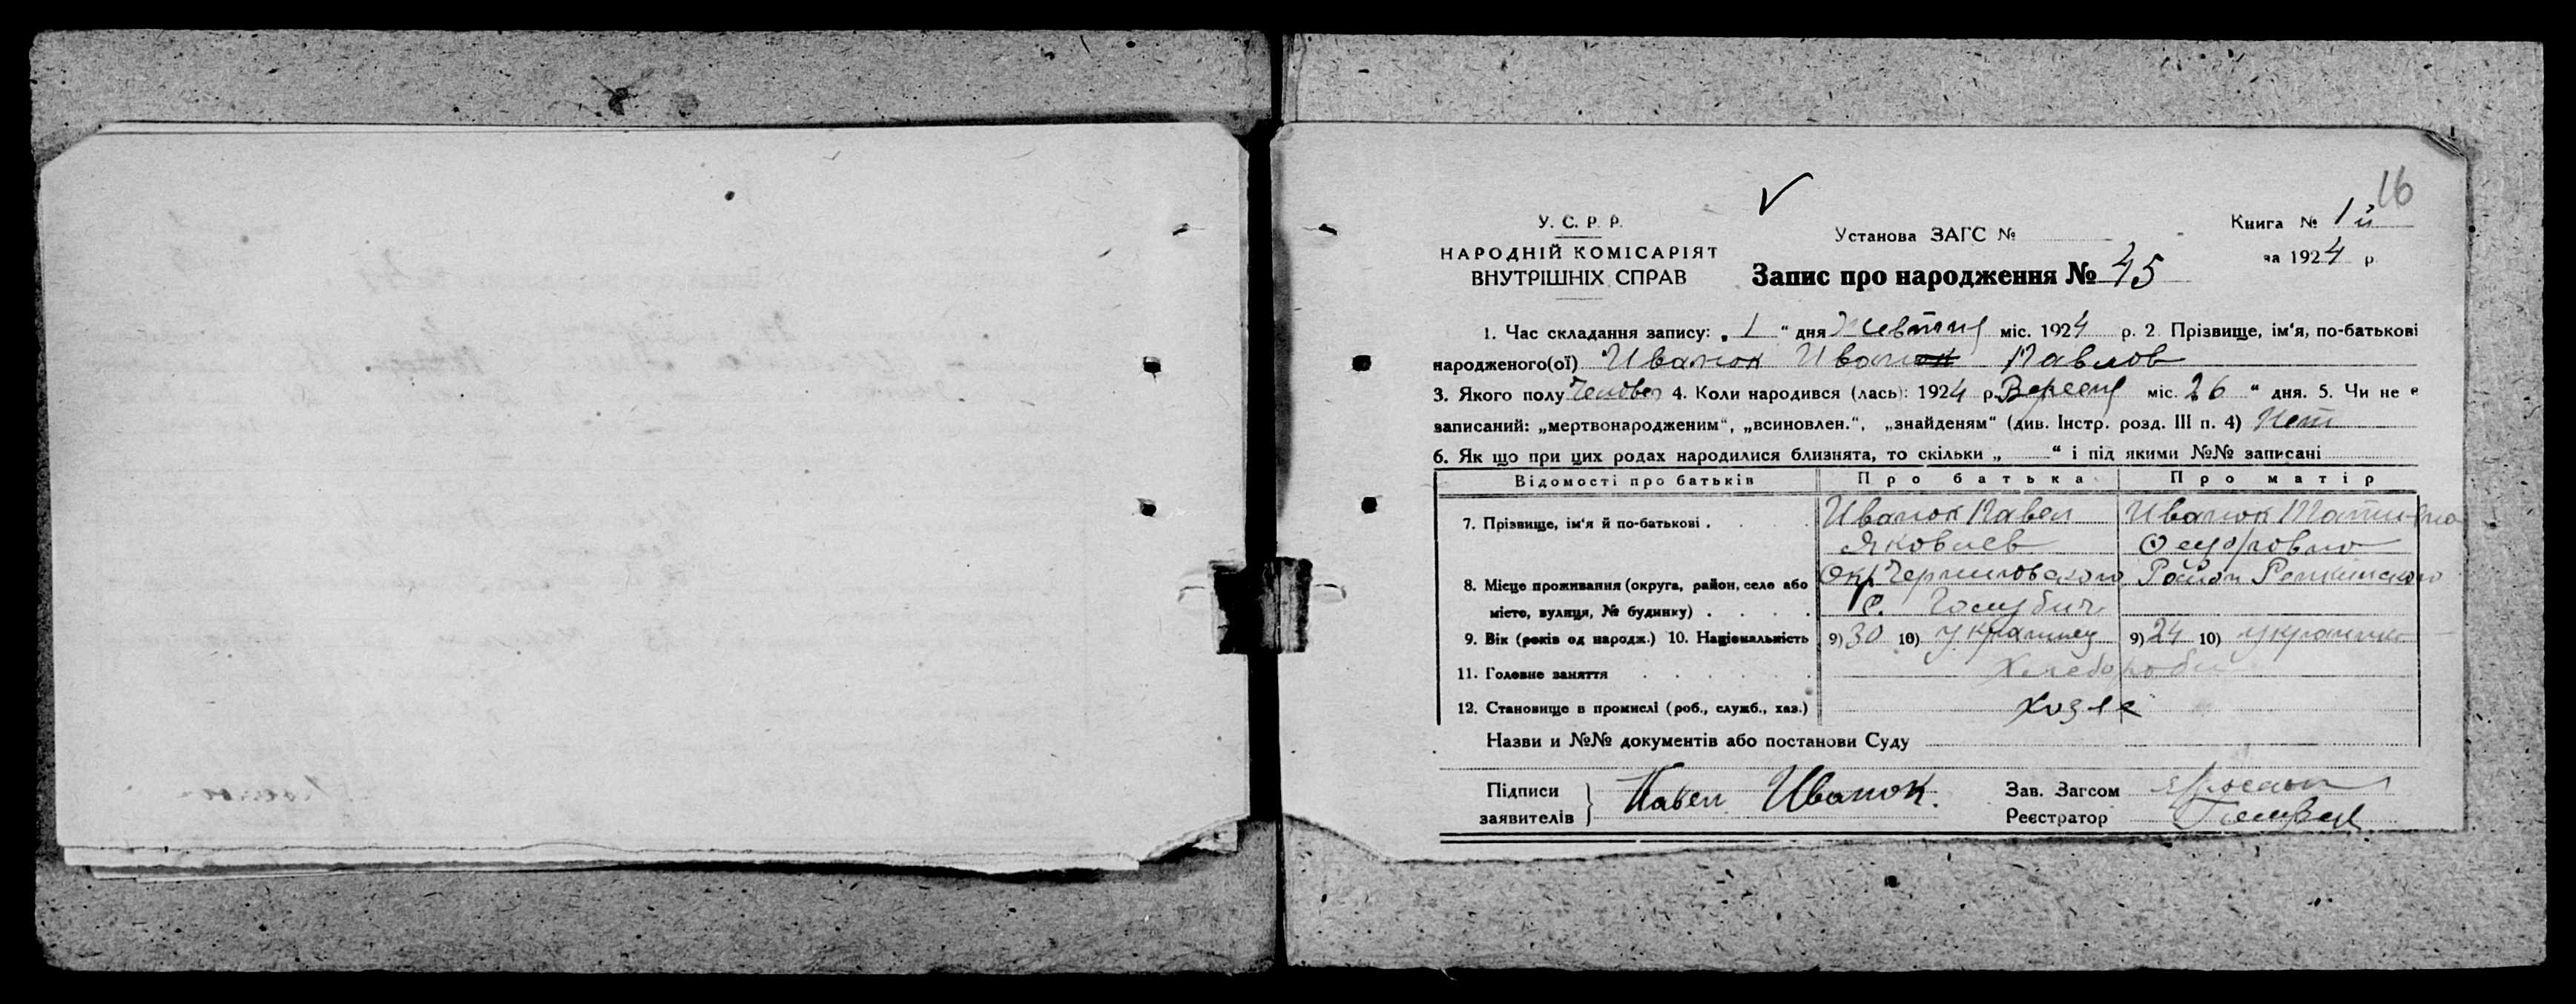 16
У. С. Р. Р.
Установа ЗАГС №
Книга № 1й
НАРОДНІЙ КОМІСАРІЯТ
ВНУТРІШНІХ СПРАВ
Запис про народження № 45
за 1924 р
1. Час складання запису: „ 1 “ дня Жевтня міс. 1924 р. 2. Прізвище, ім‘я, по-батькові
народженого(ої) Иванок Иван Павлов
3. Якого полу 4. Коли народився (лась): 1924 р. Вересня міс. 26 “ дня. 5. Чи не є
записаний: „мертвонародженим“, „всиновлен.“, „знайденям“ (див. Інстр. розд. III п. 4) Нет
6. Як що при цих родах народилися близнята, то скільки „ “ і під якими №№ записані
Відомості про батьків Про батька Про матір
7. Прізвище, ім‘я й по-батькові . Иванок Павел Иванок Татияна
Яковлев
8. Місце проживання (округа, район, село або Окр Черниговского Район Репкинского
місто, вулиця, № будинку) . . . . с. Голубич
9. Вік (років од народж.) 10. Національність 9) 30 10) Украинец 9) 24 10) украинка
11. Головне заняття . . . . . . Хлебороби
12. Становище в промислі (роб., служб., хаз.)
Назви и №№ документів або постанови Суду
Підписи
заявителів
Павел Иванок.
Зав. Загсом
Реєстратор